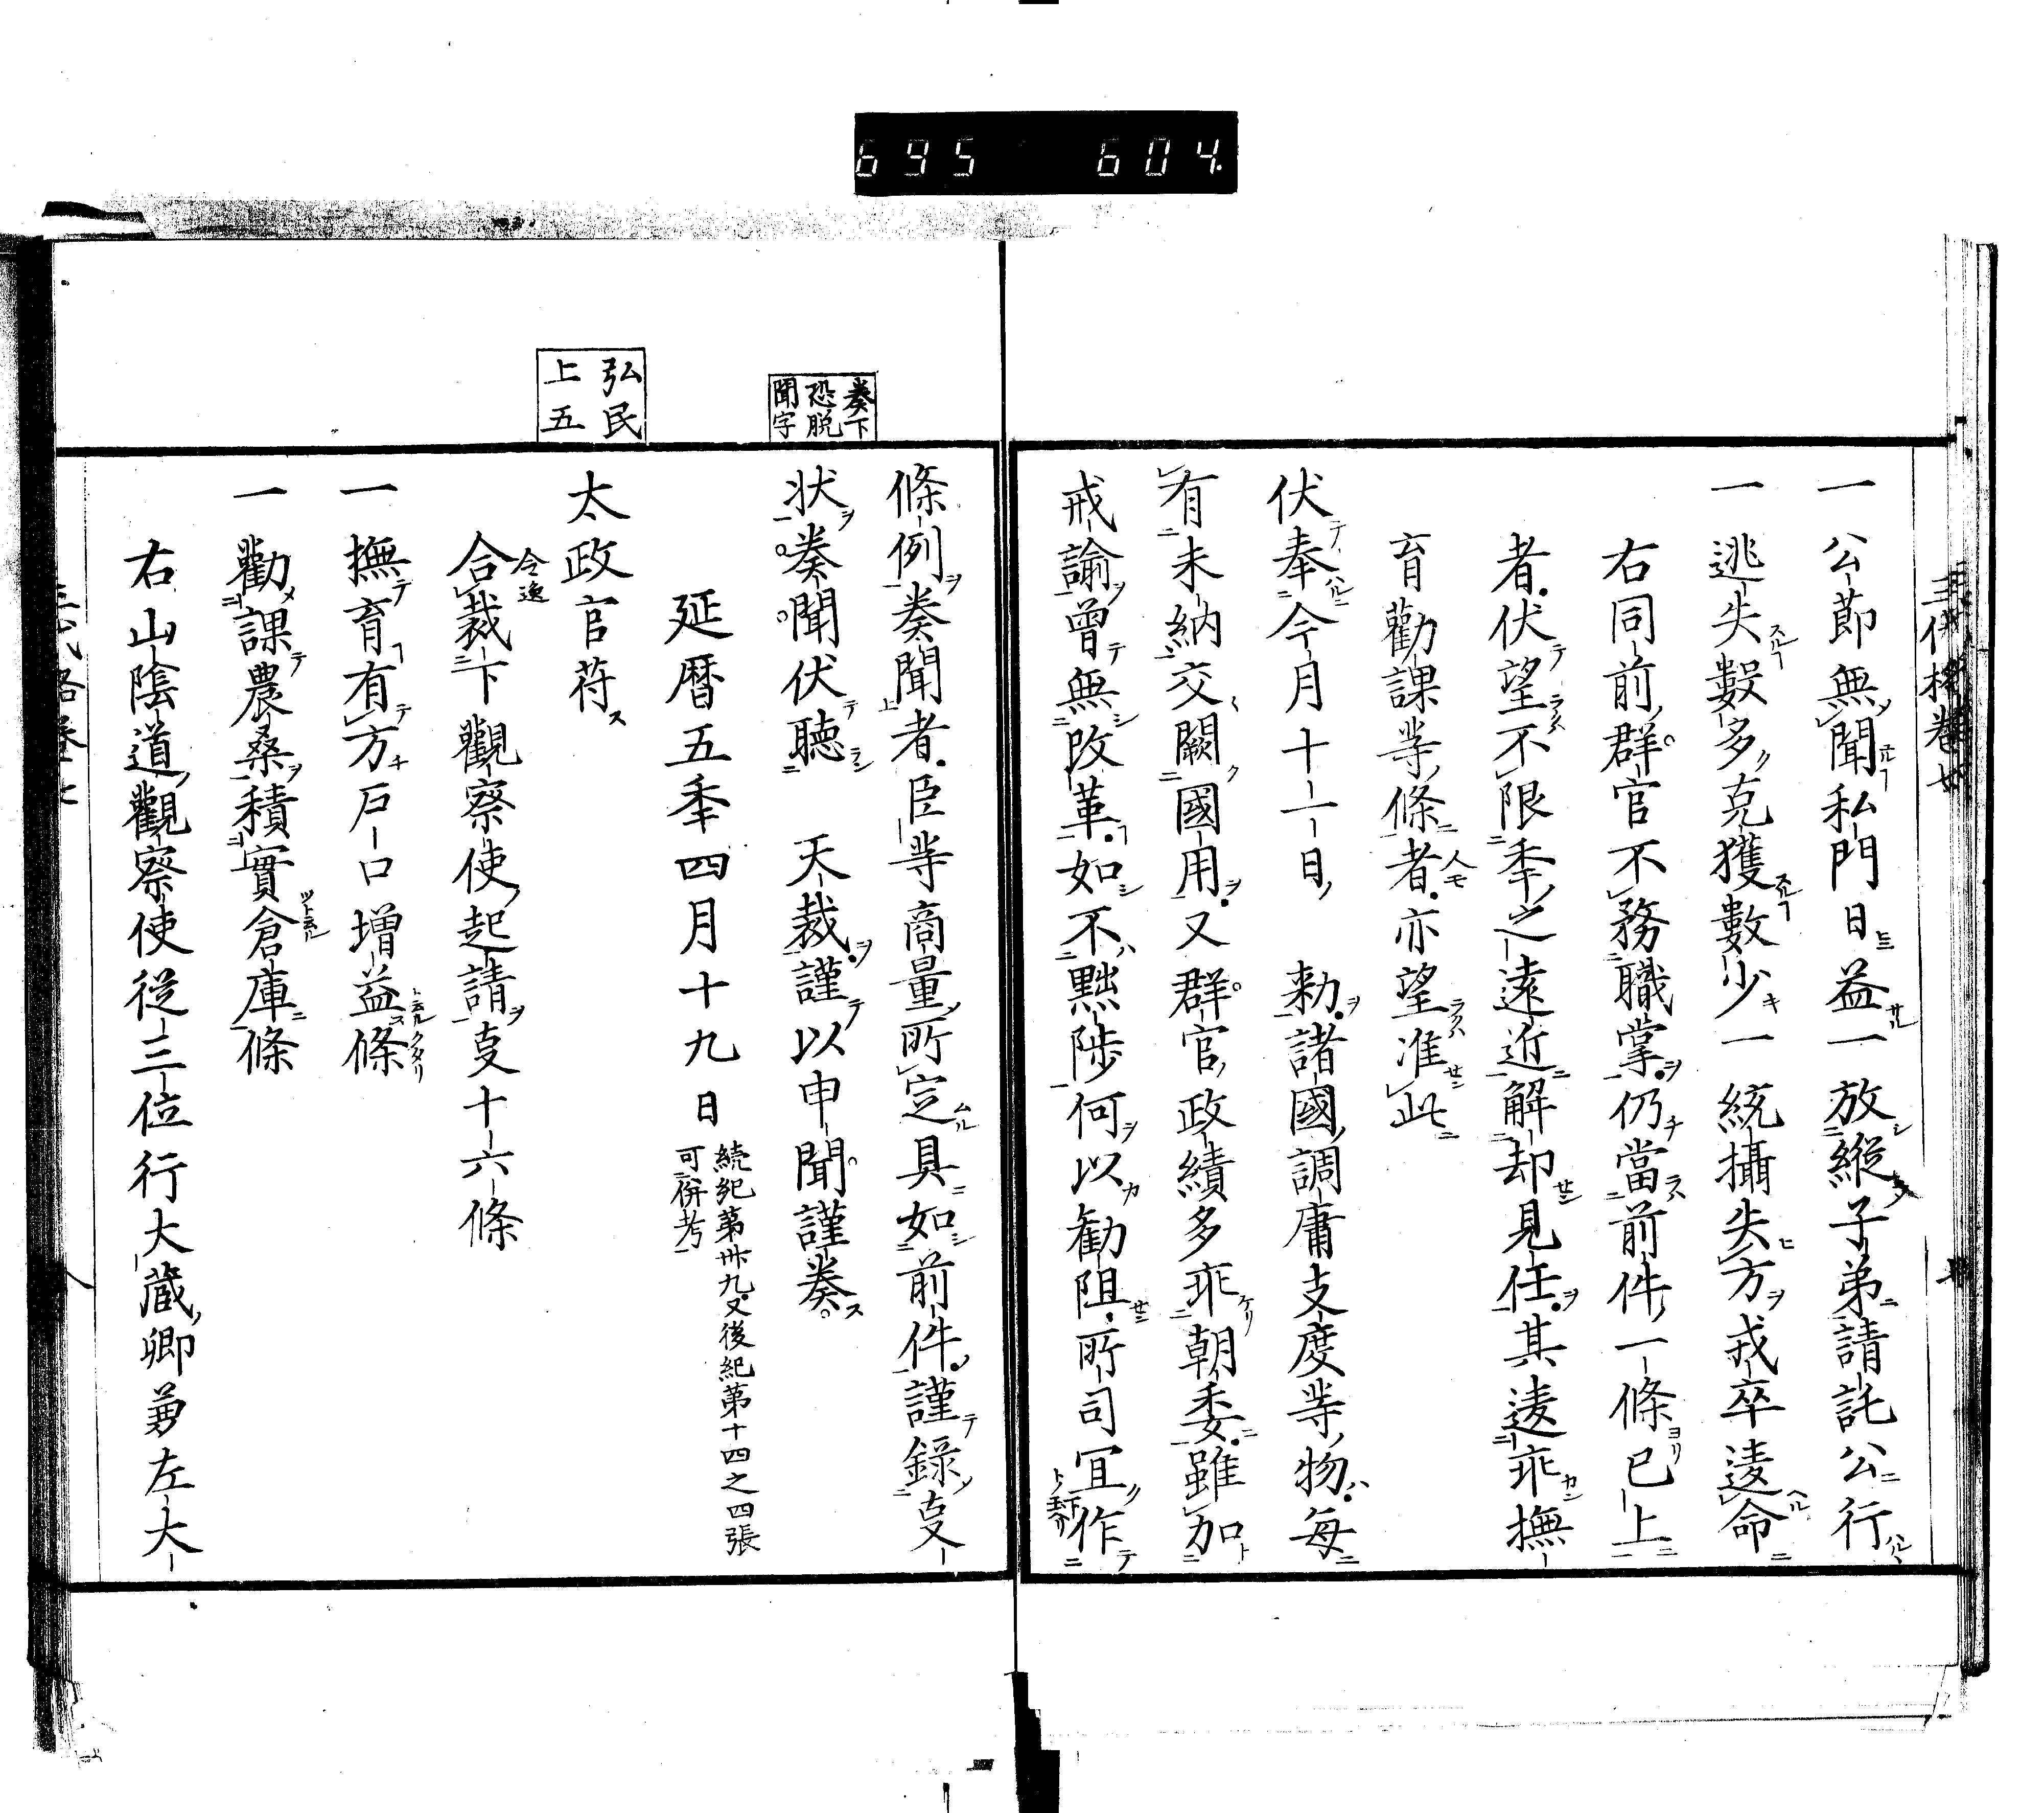 695 604
一公節無聞私門日益一放縱子弟請託公行
一逃失數多克獲數少一統攝失方戎卒違命
右同前群官不務職掌仍當前件一條已上
者伏望不限季之遠近解却見任其違乖撫
育勸課等條者亦望准此
伏奉今月十一日勅諸國調庸支度等物每
有未納交闕國用又群官政績多乖朝委雖加
戒諭曾無改革如不黜陟何以勸阻所司宜作
奏下恐脱聞字
條例奏聞者臣等商量所定具如前件謹錄叓
状奏聞伏聽天裁謹以申聞謹奏
延暦五秊四月十九日
続紀第卅九又後紀第十四之四張
可併考
弘民上五
太政官苻
合裁下觀察使起請叓十六條
一撫育有方戸口增益條
一勸課農桑積實倉庫條
右山陰道觀察使從三位行大蔵卿兼左大